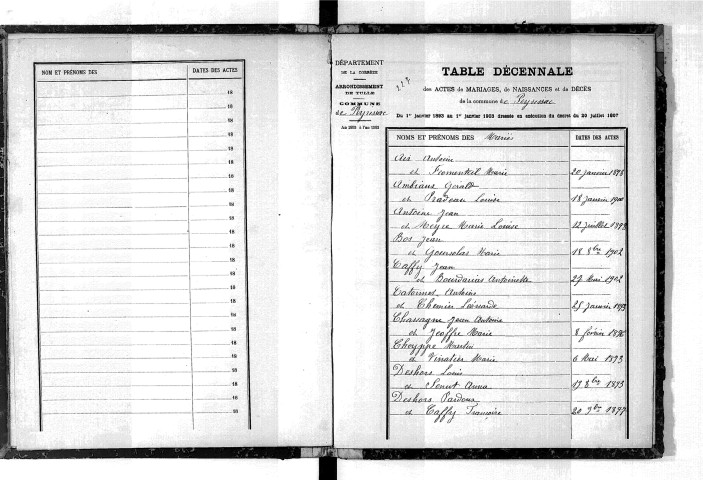 NOM ET PRÉNOMS DES
DATES DES ACTES
18
18
18
18
18
18
18
18
18
18
18
18
18
18
18
18
18
18
18
18
18
18
18
18
DÉPARTEMENT
DE LA CORRÈZE
ARRONDISSEMENT
DE TULLE
COMMUNE
de Peyrissac
An 1893 à l'an 1903
TABLE DÉCENNALE
des ACTES de MARIAGES, de NAISSANCES et de DÉCÈS
de la commune de Peyrissac
Du 1er janvier 1893 au 1er janvier 1903 dressée en exécution du décret du 20 juillet 1807
NOMS ET PRÉNOMS DES Mariés
DATES DES ACTES
Antoine
et Fromenteil Marie 20 janvier 1898
Ambiaus Gerald
et Pradeau Louise 18 janvier 1900
Antoine Jean
et Meyre Marie Louise 12 juillet 1899
Bos Jean
et Goursolas Marie 18 8bre 1902
Caffy Jean
et Bourdarias Antoinette 27 Mai 1902
Antoine
et Chemier Léonarde 25 janvier 1893
Chassagne Jean Antoine
et Jeoffre Marie 8 février 1896
Choyppe Martin
et Vinatier Marie 6 Mai 1893
Deshors Louis
et Senut Anna 17 8bre 1893
Deshors Pardoux
et Caffy Françoise 20 9bre 1897